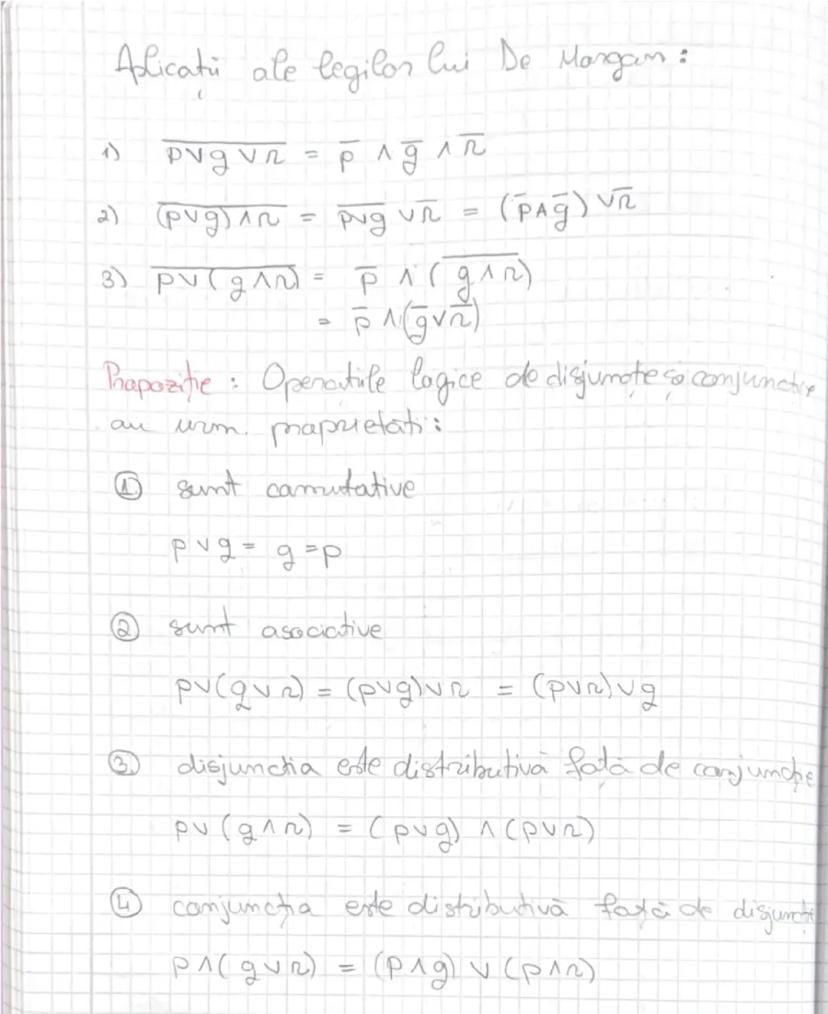 Aplicații ale legilor lui De Morgan:
1) \overline{p∨q∨r} = p̅ ∧ q̅ ∧ r̅
2) \overline{(p∨q)∧r} = \overline{p∨q} ∨ r̅ = (p̅∧q̅) ∨ r̅
3) \overline{p∨(q∧r)} = p̅ ∧ (\overline{q∧r})
= p̅ ∧ (q̅∨r̅)
Propoziție: Operatiile logice de disjuncție și conjuncție
au urm. proprietăți:
① sunt comutative
p∨q = q=p
② sunt asociative
p∨(q∨r) = (p∨q)∨r = (p∨r)∨q
③ disjunctia este distributivă față de conjuncție
p∨(q∧r) = (p∨q) ∧ (p∨r)
④ conjuncția este distributivă față de disjuncti
p∧(q∨r) = (p∧q) ∨ (p∧r)